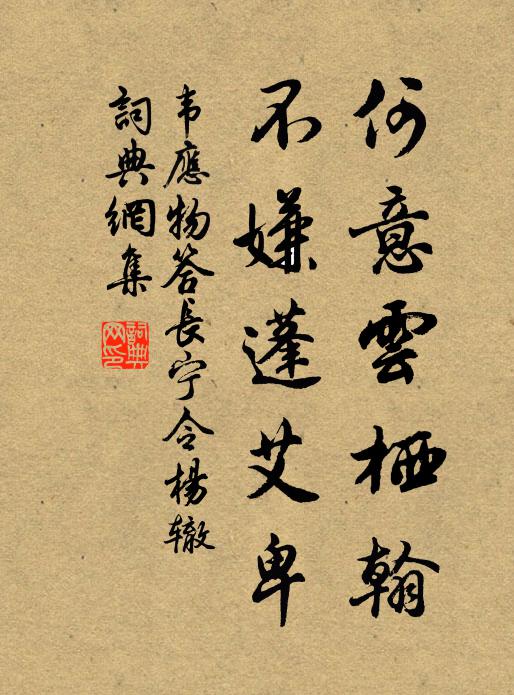 何意雲栖翰
不嫌蓬艾卑
韦應物答長宁令楊辙
詞典網集
詞典
网印